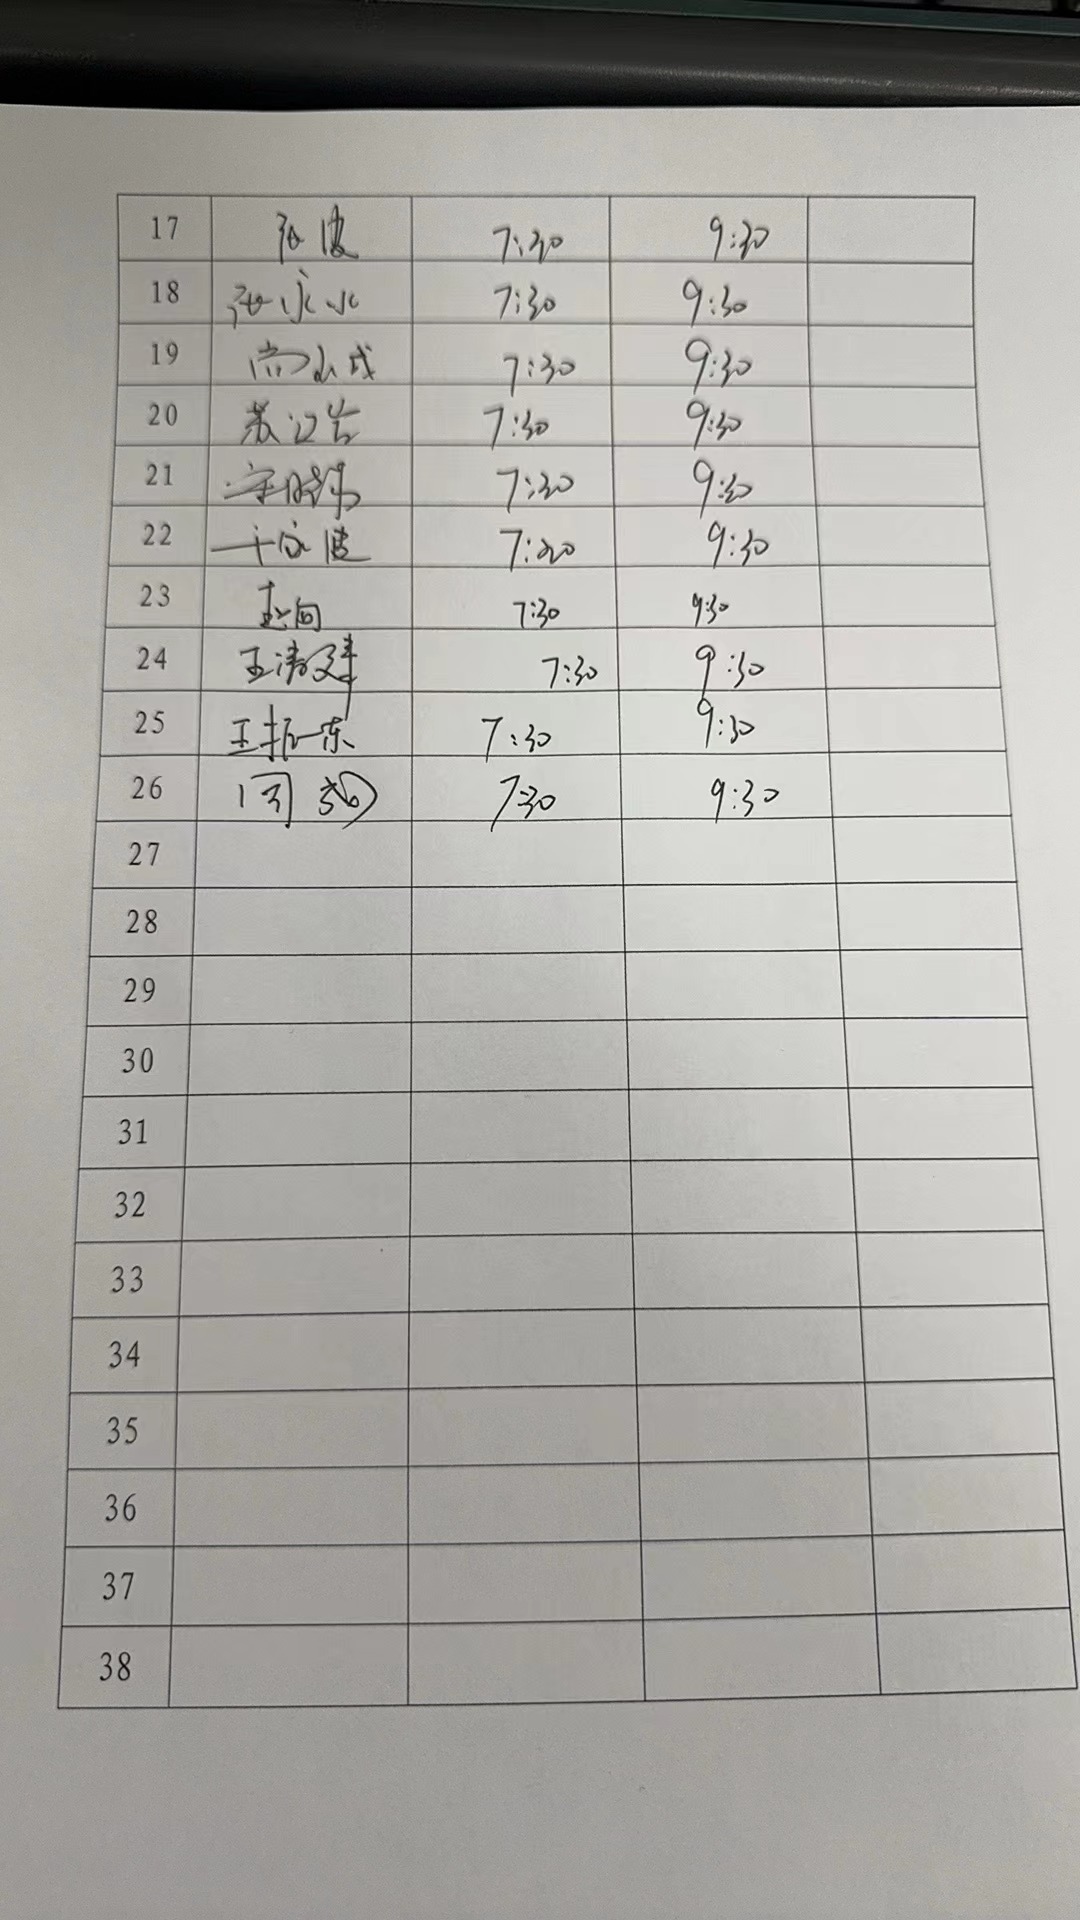 17 7:30 9:30
18 7:30 9:30
19 7:30 9:30
20 7:30 9:30
21 7:30 9:30
22 7:30 9:30
23 7:30 9:30
24 王清建 7:30 9:30
25 王振东 7:30 9:30
26 7:30 9:30
27
28
29
30
31
32
33
34
35
36
37
38